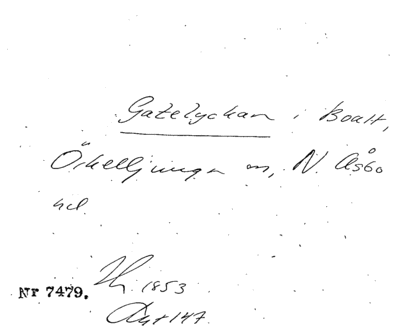 Gatelyckan i Boalt,
Örkelljunga sn, N. Åsbo
hd.
Nr 7479. 1853
Akt 147.